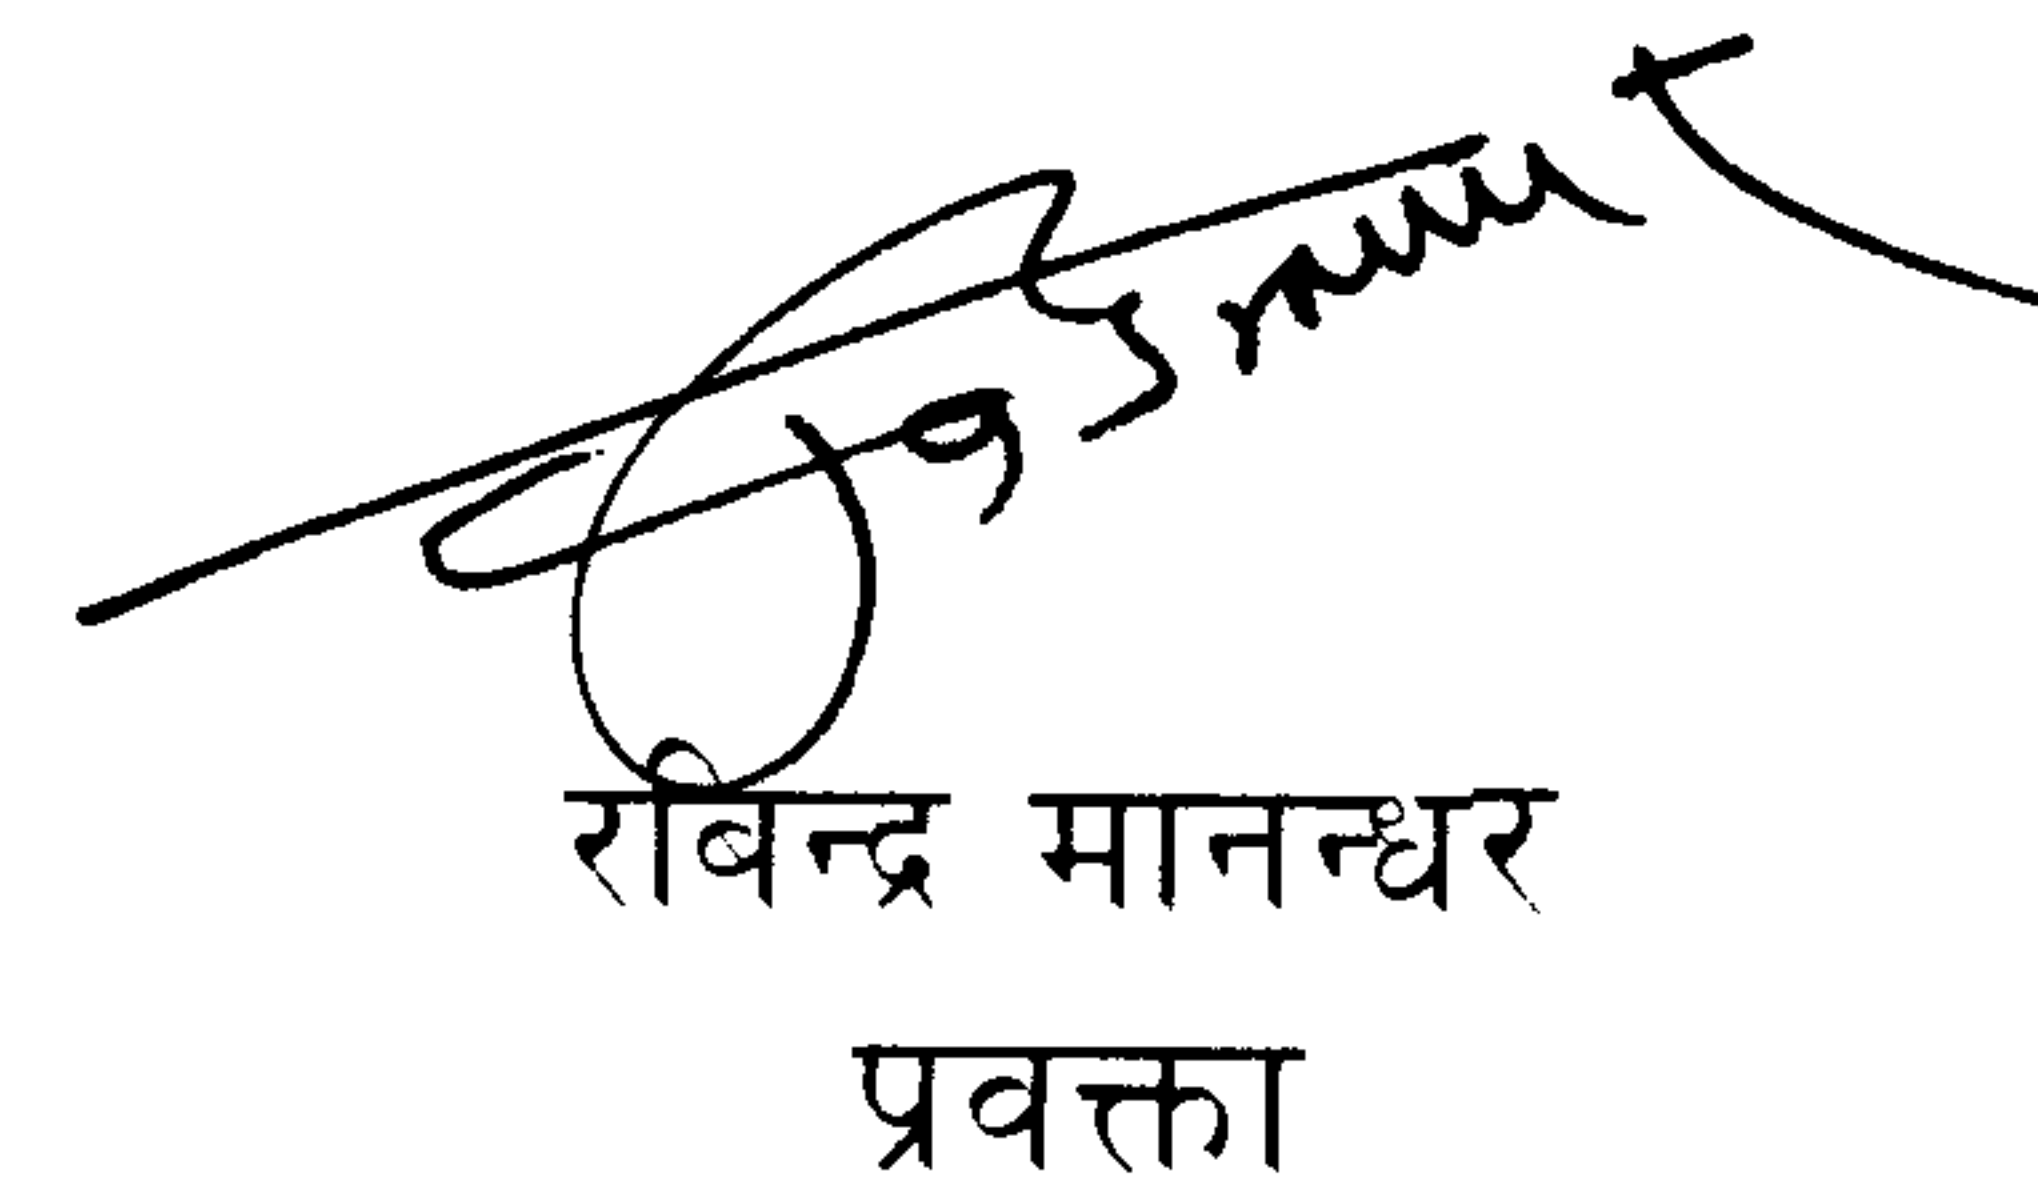 रबिन्द्र मानन्धर
प्रवक्ता